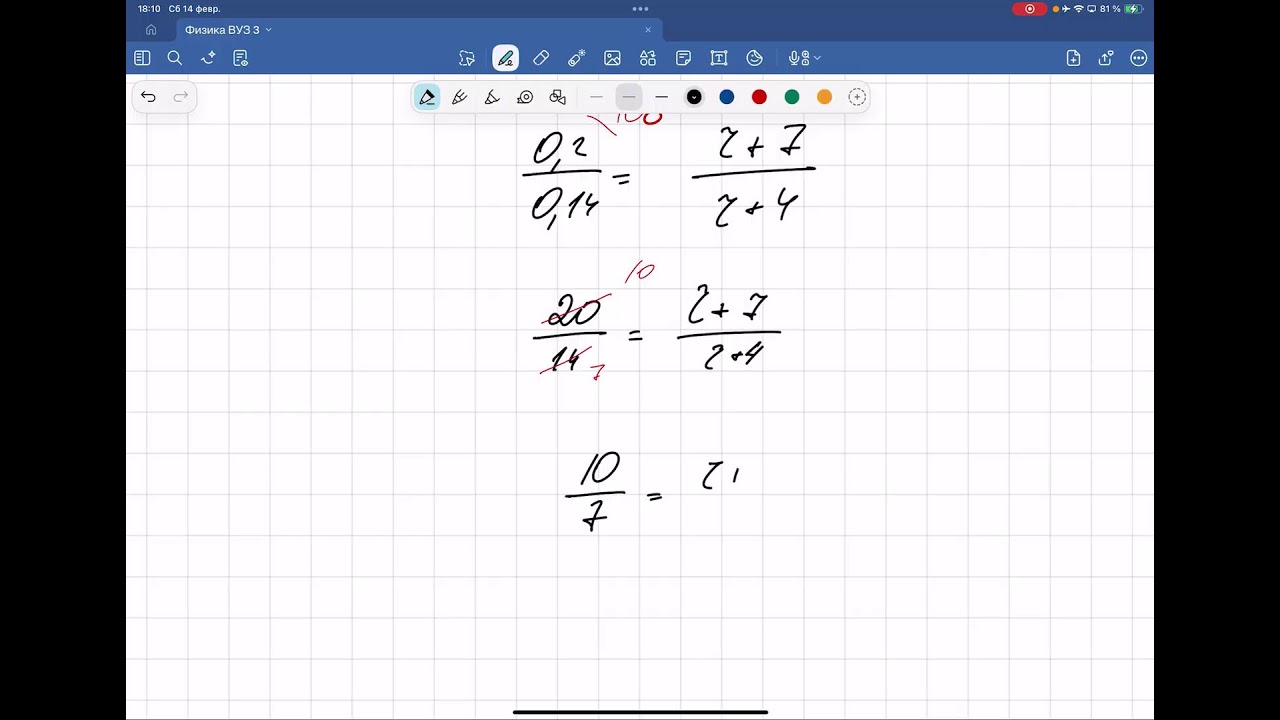 18:10 Сб 14 февр.
81 %
Физика ВУЗ 3
100
0,2 / 0,14 = (r + 7) / (r + 4)
10
20 / 14 = (r + 7) / (r + 4)
7
10 / 7 = r